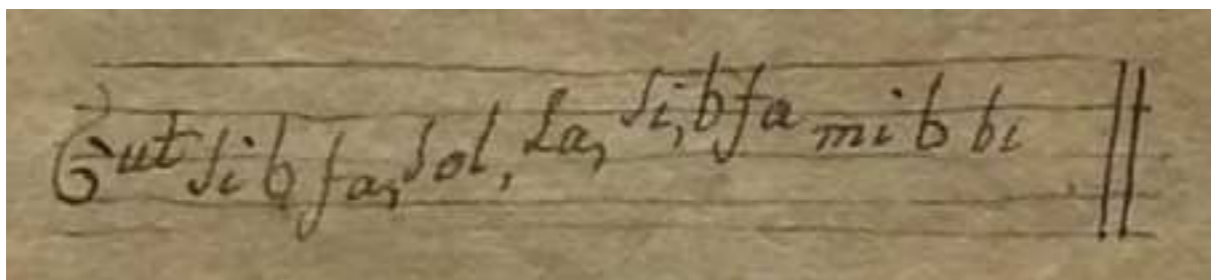 Gut si b fa, sol, La, si, b fa mi b bi